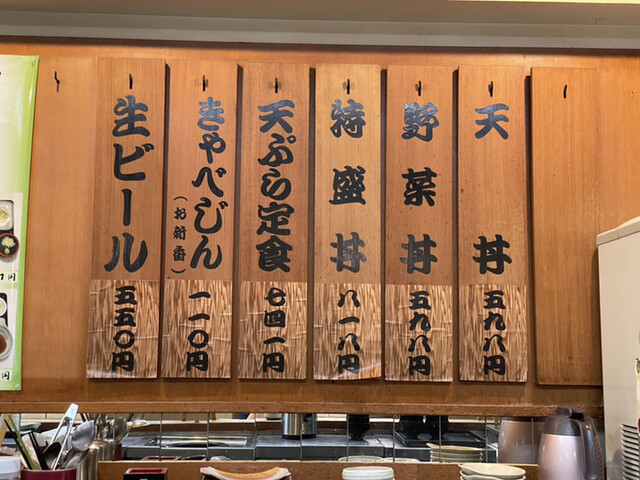 天丼
五九八円
野菜丼
五九八円
特盛丼
八一八円
天ぷら定食
七四一円
きゃべじん
(お新香)
一一〇円
生ビール
五五〇円
円
円